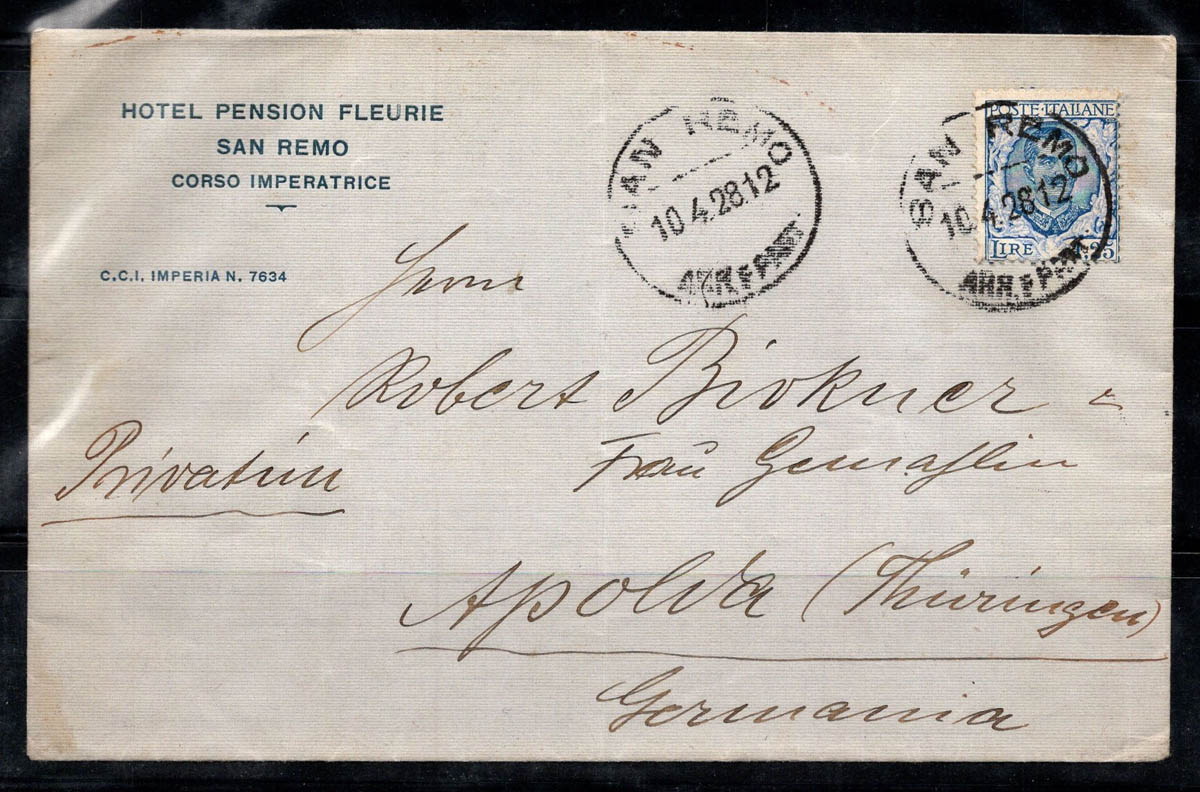 HOTEL PENSION FLEURIE
SAN REMO
CORSO IMPERATRICE
C.C.I. IMPERIA N. 7634
SAN REMO
10.4.28.12
ARR. E PART.
POSTE·ITALIANE
LIRE 1.25
SAN REMO
10.4.28.12
ARR. E PART.
Herrn
Robert Birkner &
Frau Gemahlin
Privatim
Apolda (Thüringen)
Germania